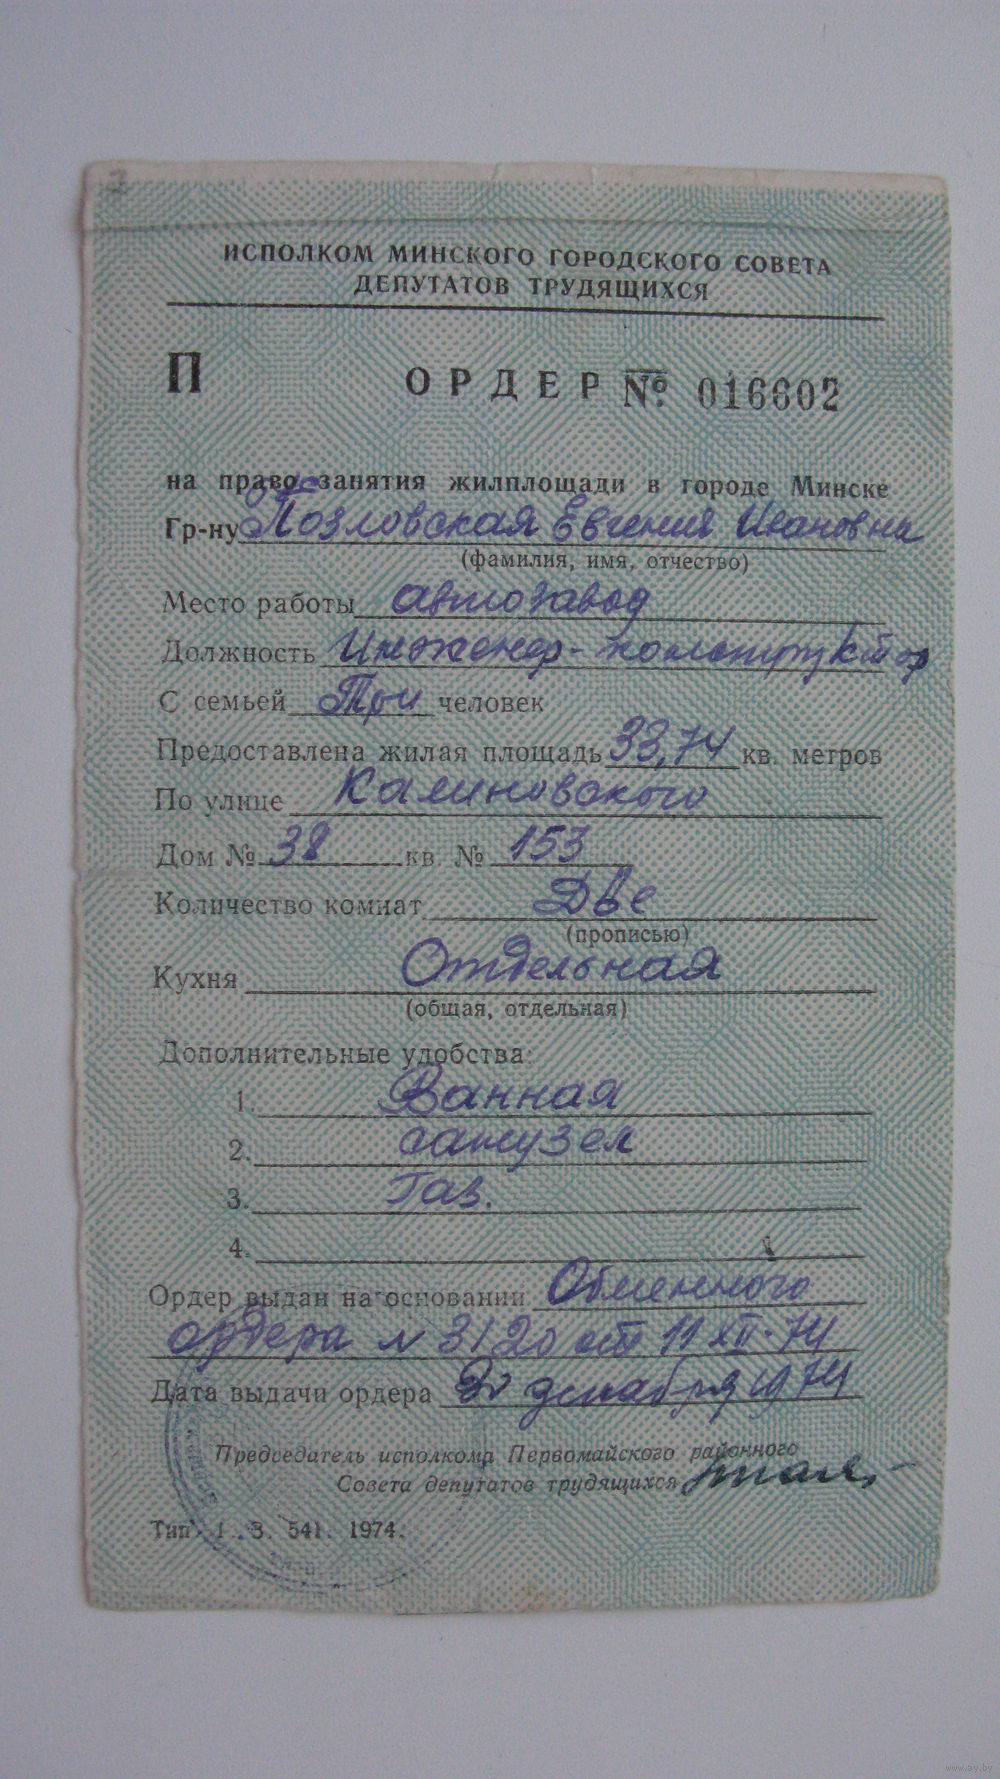 ИСПОЛКОМ МИНСКОГО ГОРОДСКОГО СОВЕТА
ДЕПУТАТОВ ТРУДЯЩИХСЯ
П ОРДЕР № 016602
на право занятия жилплощади в городе Минске
Гр-ну Позловская Евгения Ивановна
(фамилия, имя, отчество)
Место работы автозавод
Должность Инженер-конструктор
С семьей Три человек
Предоставлена жилая площадь 33,74 кв. метров
По улице Калиновского
Дом № 38 кв. № 153
Количество комнат Две
(прописью)
Кухня Отдельная
(общая, отдельная)
Дополнительные удобства:
1. Ванная
2. санузел
3. Газ.
4.
Ордер выдан на основании Обменного
ордера N 3120 от 11 XII-74
Дата выдачи ордера 20 декабря 1974
Председатель исполкома Первомайского районного
Совета депутатов трудящихся
Тип. 1 З. 541. 1974.
www.ay.by